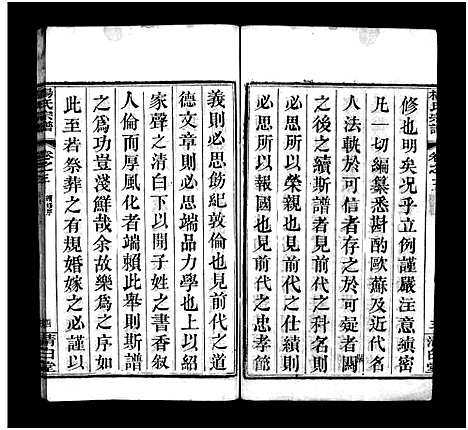 修也明矣况乎立例謹嚴注意縝密
凡一切編纂悉斟酌歐蘇及近代名
人法軼於可信者存於可疑者闕
之後之續斯譜者見前代之科名則
必思所以榮親也見前代之仕績則
必思所以報國也見前代之忠孝節
義則必思飭紀敦倫也見前代之道
德文章則必思端品力學也上以紹
家聲之清白下以開子姓之書香叙
人倫而厚風化者端賴此舉則斯譜
之為功豈淺鮮哉余故樂為之序如
此至若祭葬之有規婚嫁之必謹以
楊氏宗譜
卷之三
清白堂